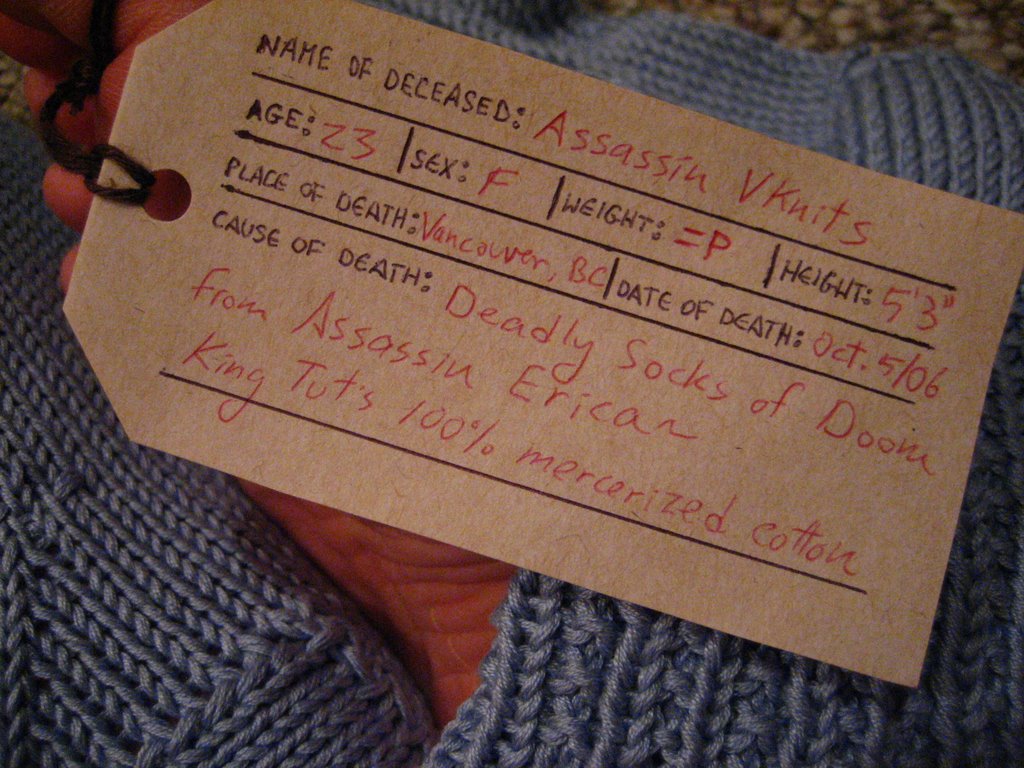 NAME OF DECEASED: Assassin VKnits
AGE: 23 | SEX: F | WEIGHT: =P | HEIGHT: 5'3"
PLACE OF DEATH: Vancouver, BC | DATE OF DEATH: Oct. 5/06
CAUSE OF DEATH: Deadly Socks of Doom
from Assassin Erican
King Tut's 100% mercerized cotton